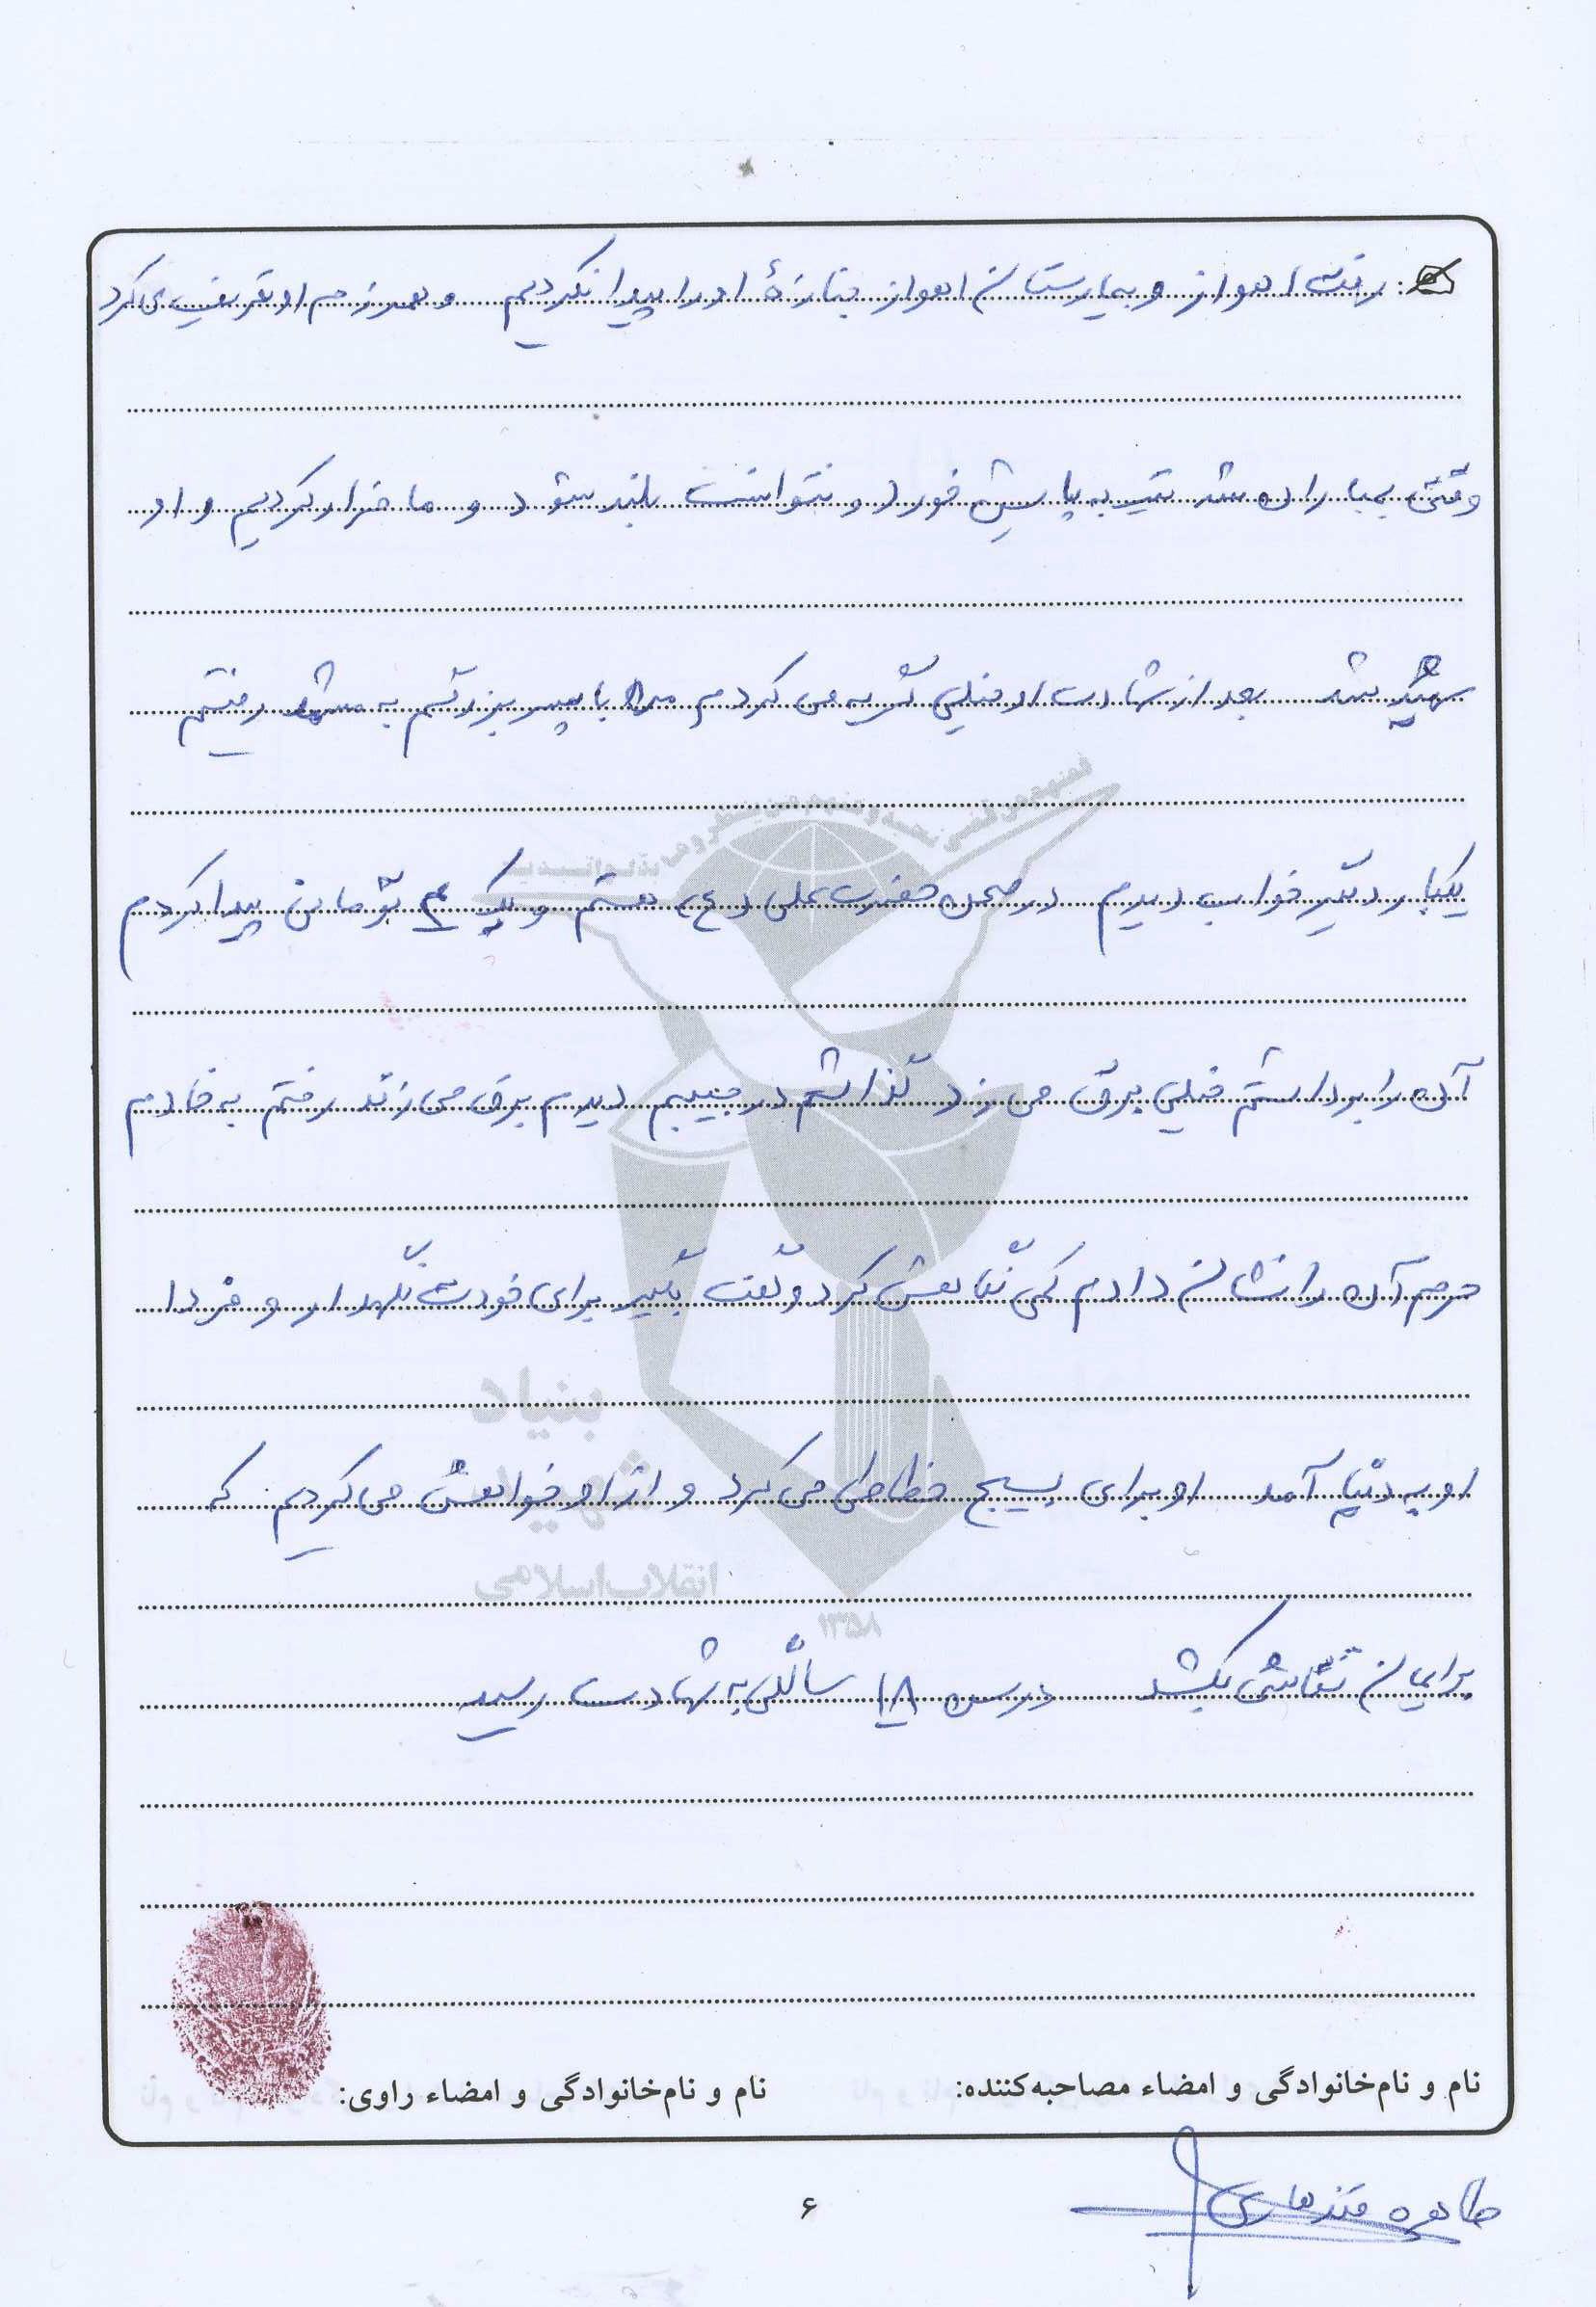 رفت اهواز و بیمارستان اهواز جنازهٔ او را پیدا نکردیم و همرزم او تعریف می کرد
وقتی بمباران شد تیر به پایش خورد و نتوانست بلند شود و ما فرار کردیم و او
شهید شد بعد از شهادت او خیلی گریه می کردم من با پسر بزرگم به مشهد رفتم
یکبار دیگر خواب دیدم در صحن حضرت علی (ع) هستم و یک ۲ تومان پیدا کردم
آن را برداشتم خیلی برق می زد گذاشتم در جیبم دیدم برق می زند رفتم به خادم
حرم آن را نشان دادم کمی نگاهش کرد و گفت بگیر برای خودت نگهدار و فردا
او به دنیا آمد او برای بسیج خطاطی می کرد و از او خواهش می کردیم که
برایمان نقاشی بکشد در سن ۱۸ سالگی به شهادت رسید
بنیاد
شهید
انقلاب اسلامی
۱۳۵۸
نام و نام‌خانوادگی و امضاء مصاحبه‌کننده: نام و نام‌خانوادگی و امضاء راوی:
طاهره قندهاری
۶